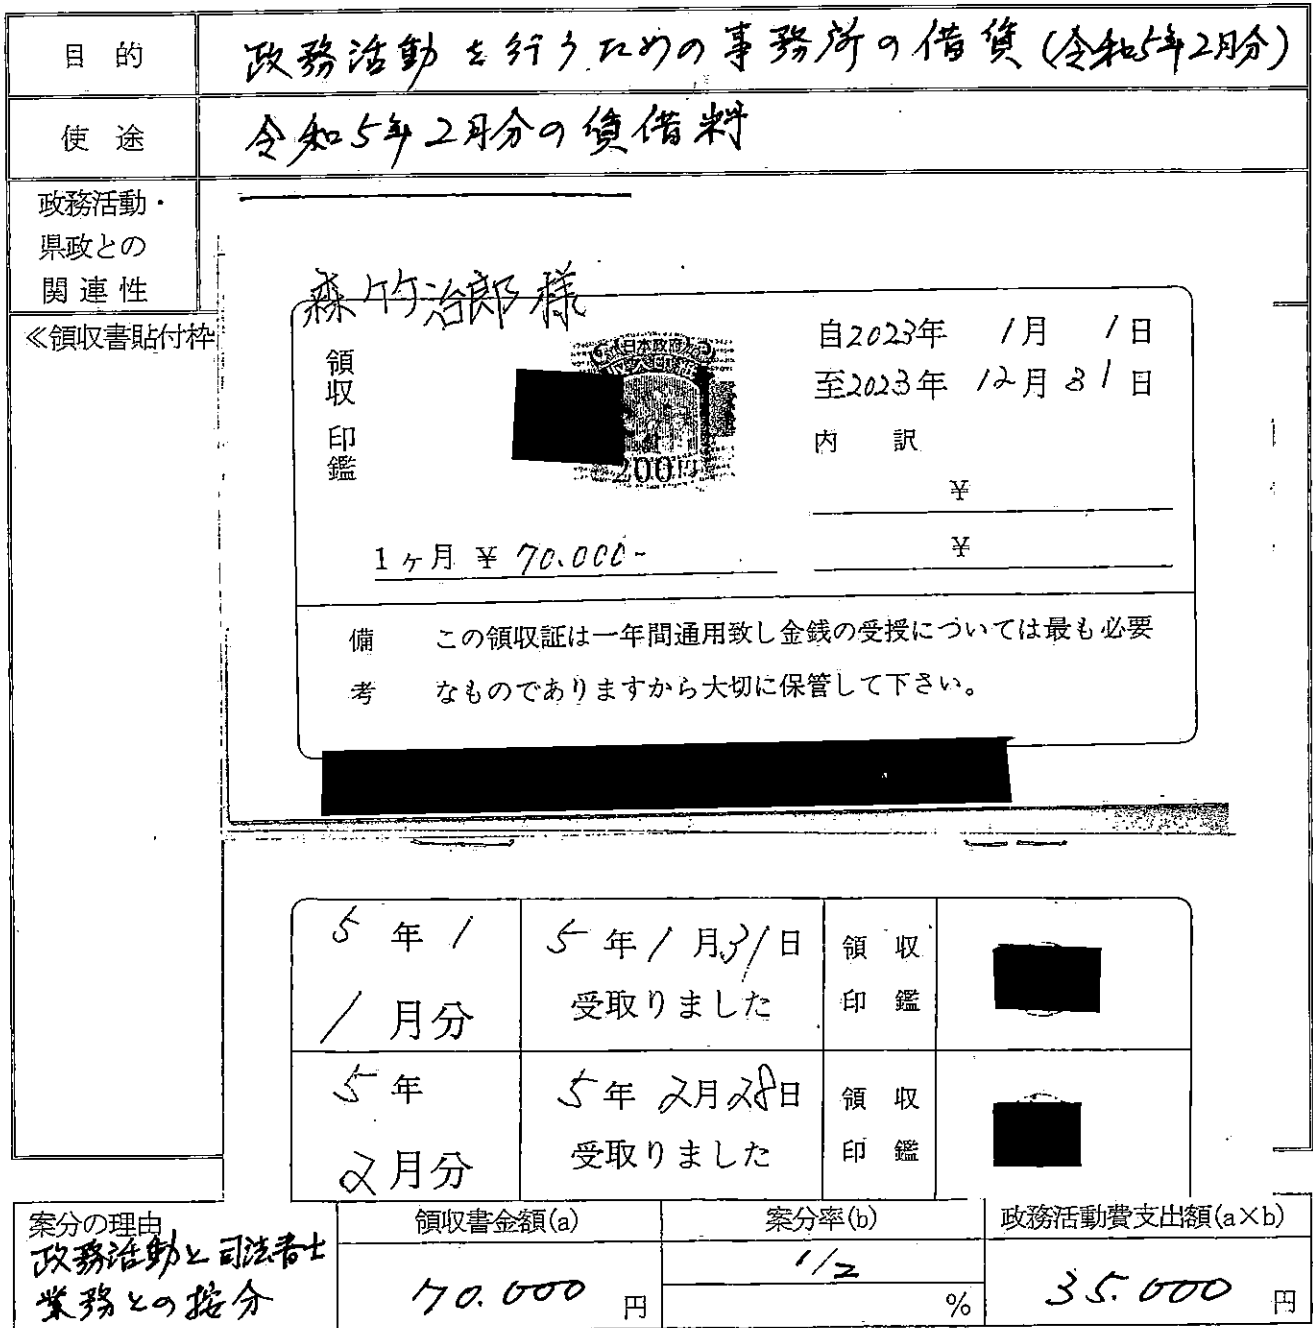 目的
政務活動を行うための事務所の借賃(令和5年2月分)
使途
令和5年2月分の賃借料
政務活動・
県政との
関連性
≪領収書貼付枠
森竹治郎様
領収印鑑
日本政府
200円
自2023年 1月 1日
至2023年 12月31日
内訳
¥
¥
1ヶ月 ¥ 70.000-
備考
この領収証は一年間通用致し金銭の受授については最も必要
なものでありますから大切に保管して下さい。
5年1
1月分
5年1月31日
受取りました
領収
印鑑
5年
2月分
5年2月28日
受取りました
領収
印鑑
案分の理由
政務活動と司法書士
業務との按分
領収書金額(a)
70.000円
案分率(b)
1/2
%
政務活動費支出額(a×b)
35.000円